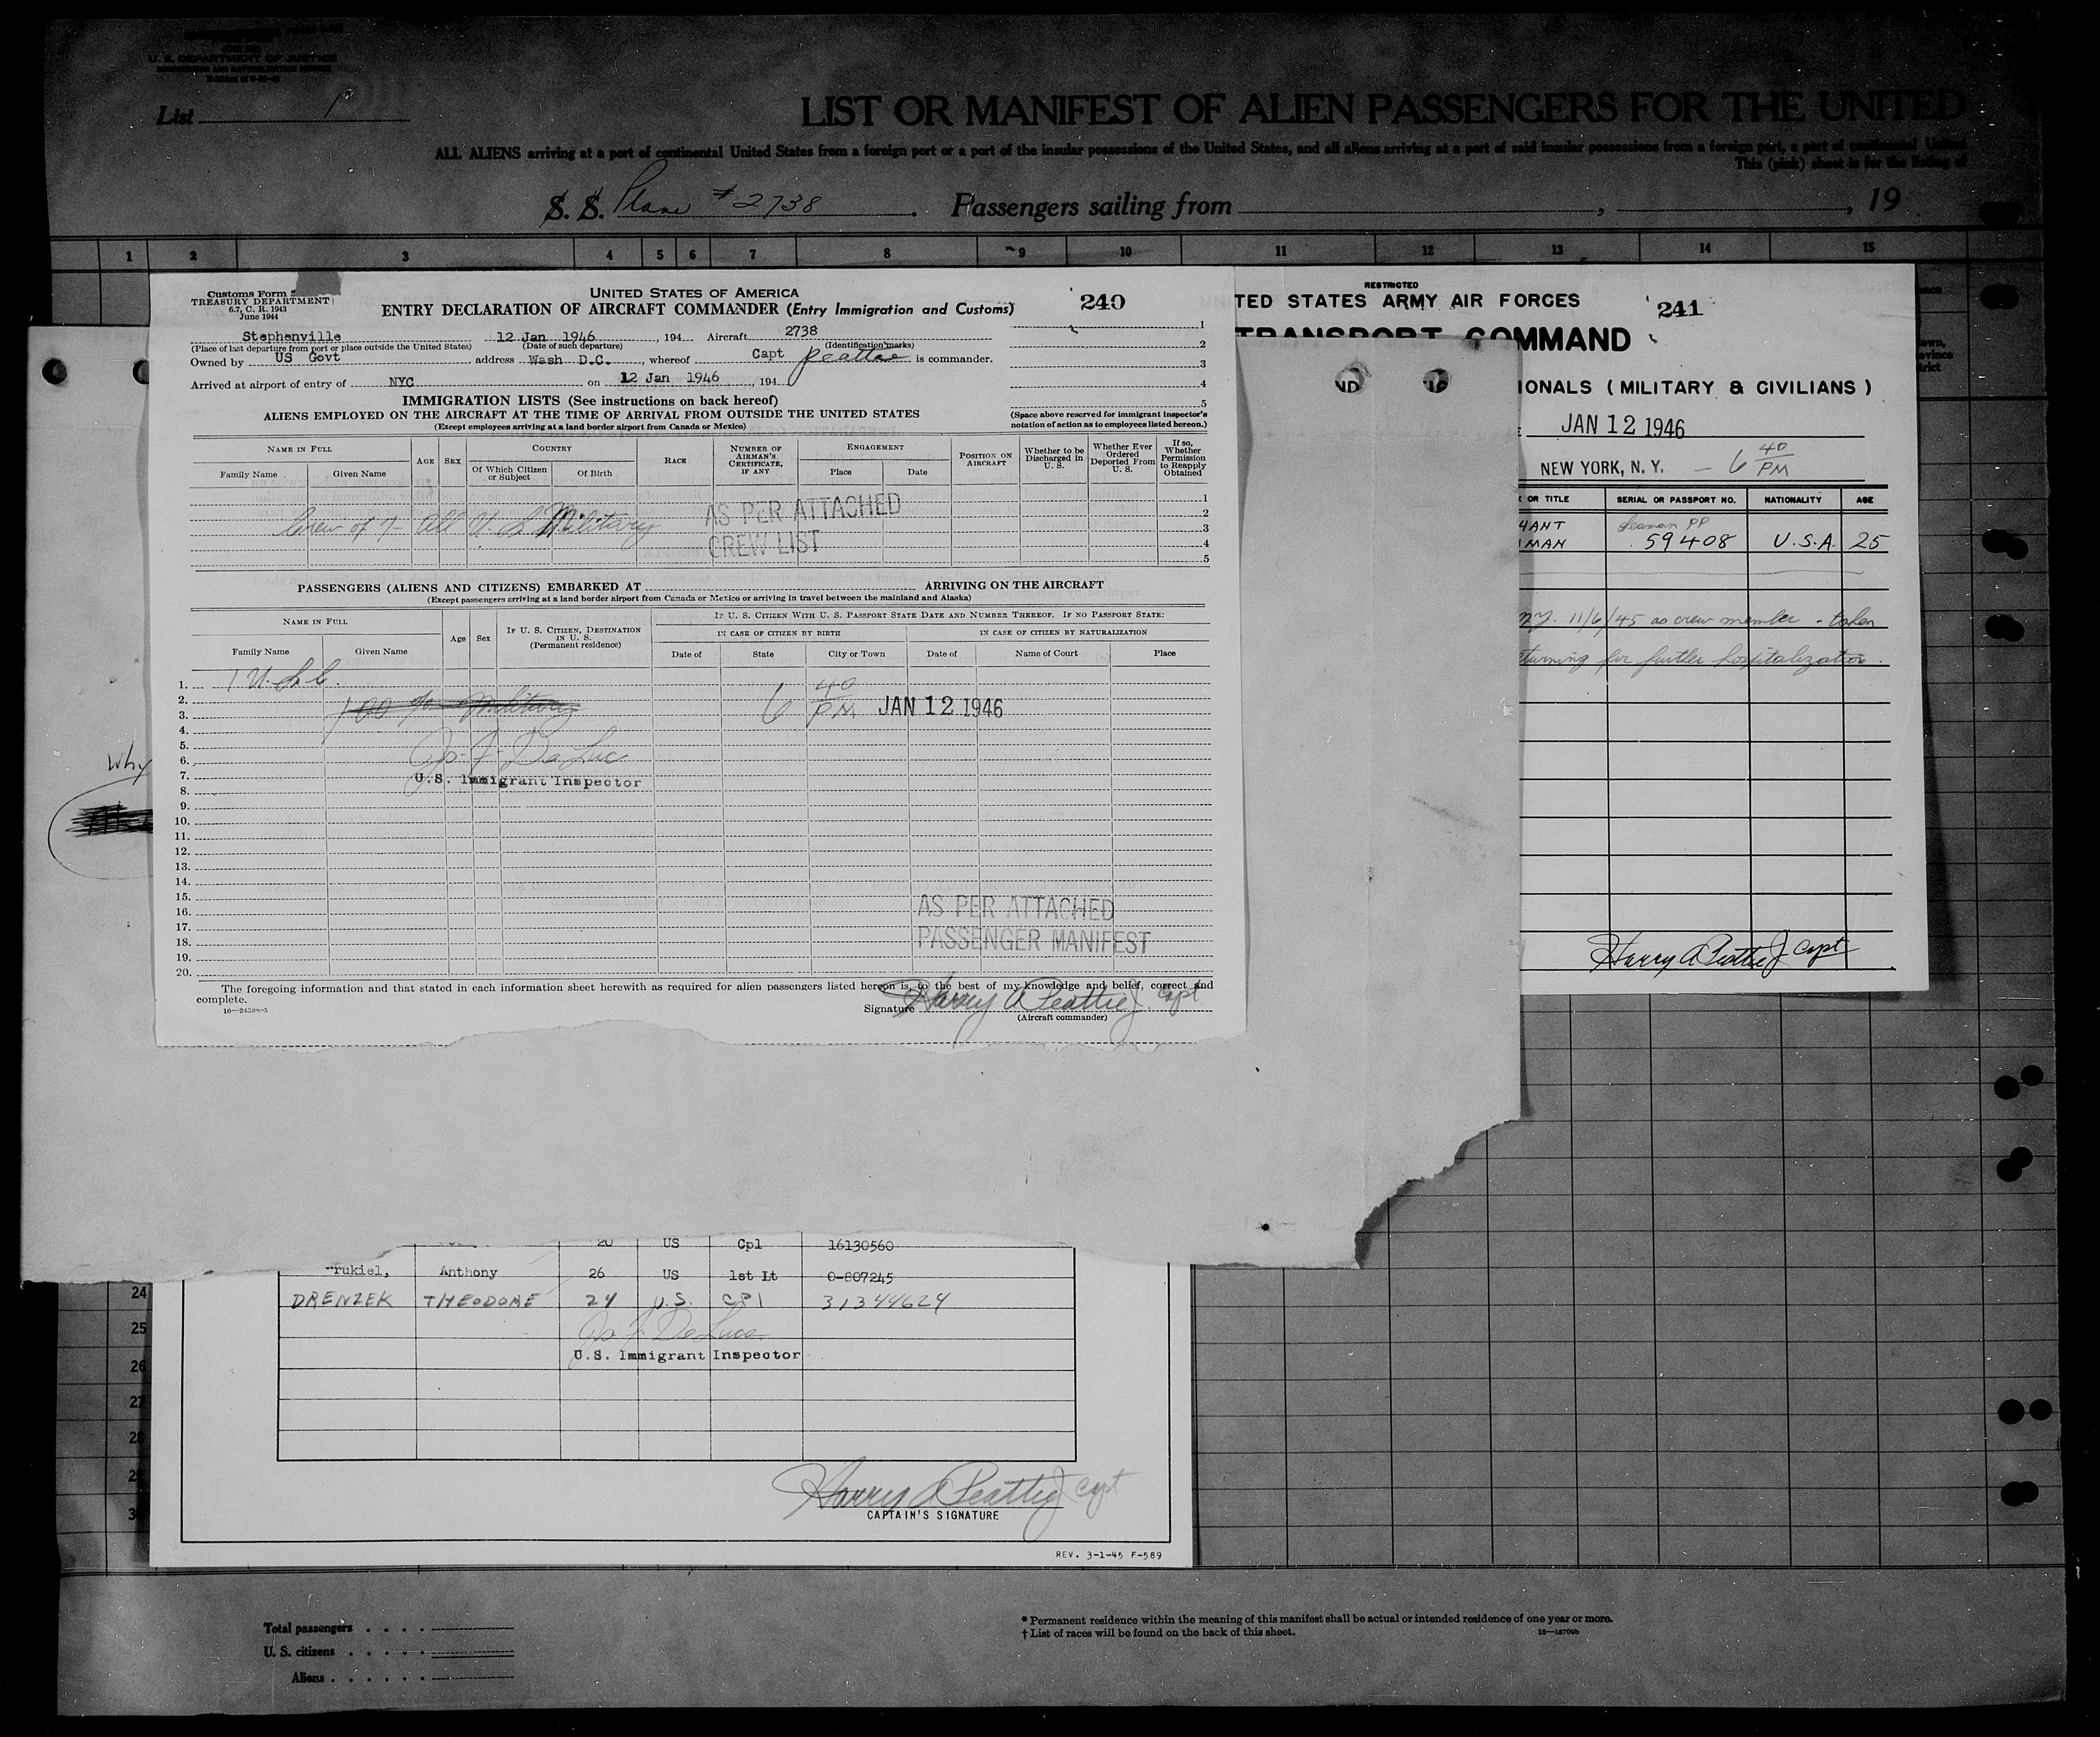 U. S. DEPARTMENT OF JUSTICE
List 1
LIST OR MANIFEST OF ALIEN PASSENGERS FOR THE UNITED
ALL ALIENS arriving at a port of continental United States from a foreign port or a port of the insular possessions of the United States, and all aliens arriving at a port of said insular possessions from a foreign port, a port of continental United
This (pink) sheet is for the listing of
S. S. Plane # 2738 . Passengers sailing from , , 19
1 2 3 4 5 6 7 8 9 10 11 12 13 14 15
Customs Form
TREASURY DEPARTMENT
6.7, C. R. 1943
June 1944
UNITED STATES OF AMERICA
ENTRY DECLARATION OF AIRCRAFT COMMANDER (Entry Immigration and Customs)
240
Stephenville 12 Jan 1946 , 194 Aircraft 2738
(Place of last departure from port or place outside the United States) (Date of such departure) (Identification marks)
Owned by US Govt address Wash D.C. , whereof Capt Peattie is commander.
Arrived at airport of entry of NYC on 12 Jan 1946 , 194
1
2
3
4
5
IMMIGRATION LISTS (See instructions on back hereof)
ALIENS EMPLOYED ON THE AIRCRAFT AT THE TIME OF ARRIVAL FROM OUTSIDE THE UNITED STATES
(Except employees arriving at a land border airport from Canada or Mexico)
(Space above reserved for immigrant inspector's
notation of action as to employees listed hereon.)
NAME IN FULL
Family Name Given Name
AGE SEX
COUNTRY
Of Which Citizen or Subject Of Birth
RACE
NUMBER OF AIRMAN'S CERTIFICATE, IF ANY
ENGAGEMENT
Place Date
POSITION ON AIRCRAFT
Whether to be Discharged in U. S.
Whether Ever Ordered Deported From U. S.
If so, Whether Permission to Reapply Obtained
Crew of 7 - All U S Military
AS PER ATTACHED
CREW LIST
1
2
3
4
5
PASSENGERS (ALIENS AND CITIZENS) EMBARKED AT ARRIVING ON THE AIRCRAFT
(Except passengers arriving at a land border airport from Canada or Mexico or arriving in travel between the mainland and Alaska)
NAME IN FULL
Family Name Given Name
Age Sex
IF U. S. CITIZEN, DESTINATION IN U. S.
(Permanent residence)
IF U. S. CITIZEN WITH U. S. PASSPORT STATE DATE AND NUMBER THEREOF. IF NO PASSPORT STATE:
IN CASE OF CITIZEN BY BIRTH IN CASE OF CITIZEN BY NATURALIZATION
Date of State City or Town Date of Name of Court Place
1.
2.
3.
4.
5.
6.
7.
8.
9.
10.
11.
12.
13.
14.
15.
16.
17.
18.
19.
20.
1 U.S.C.
Military
6 40 PM JAN 12 1946
Jos. F. DeLuca
U.S. Immigrant Inspector
AS PER ATTACHED
PASSENGER MANIFEST
The foregoing information and that stated in each information sheet herewith as required for alien passengers listed hereon is, to the best of my knowledge and belief, correct and
complete.
Signature Harry A Peattie Jr. Capt
(Aircraft commander)
16—24598-5
Why
RESTRICTED
TED STATES ARMY AIR FORCES
241
TRANSPORT COMMAND
ND
IONALS ( MILITARY & CIVILIANS )
JAN 12 1946
NEW YORK, N. Y. — 6 40 PM
OR TITLE SERIAL OR PASSPORT NO. NATIONALITY AGE
HANT Seaman PP
MAN 59408 U.S.A. 25
NY. 11/6/45 as crew member - taken
turning for further hospitalization.
Harry A Peattie Jr Capt
20 US Cpl 16130560
rukiel, Anthony 26 US 1st Lt 0-807245
24
DRENZEK THEODORE 24 U.S. CPl 31344624
25
Jos F. DeLuca
26
U.S. Immigrant Inspector
27
28
29
30
Harry A Peattie Jr Capt
CAPTAIN'S SIGNATURE
REV. 3-1-45 F-589
Total passengers
U. S. citizens
Aliens
* Permanent residence within the meaning of this manifest shall be actual or intended residence of one year or more.
† List of races will be found on the back of this sheet.
16—18709b